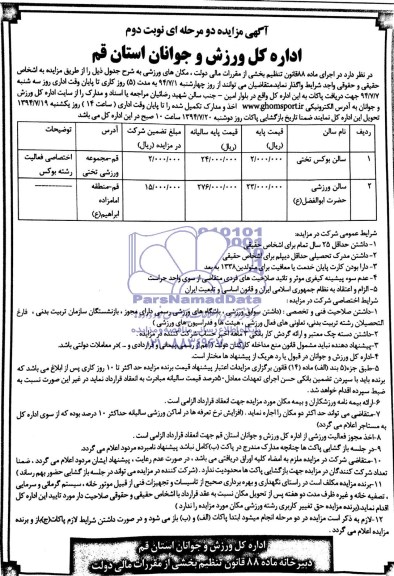 آگهی مزایده دو مرحله ای نوبت دوم
اداره کل ورزش و جوانان استان قم
در نظر دارد در اجرای ماده ۸۸ قانون تنظیم بخشی از مقررات مالی دولت ، مکان های ورزشی به شرح جدول ذیل را از طریق مزایده به اشخاص
حقیقی و حقوقی واجد شرایط واگذار نماید متقاضیان می توانند از روز چهارشنبه ۹۴/۷/۱ به مدت (۵) روز کاری تا پایان وقت اداری روز سه شنبه
۹۴/۷/۷ جهت دریافت پاکات به این اداره کل واقع در بلوار امین - جنب سالن شهید رضائیان مراجعه یا اسناد و مدارک را از سایت اداره کل ورزش
و جوانان به آدرس الکترونیکی www.ghomsport.ir اخذ و مدارک تکمیل شده را تا پایان وقت اداری (ساعت ۱۴ ) روز یکشنبه ۱۳۹۴/۷/۱۹
تحویل این اداره کل نمایند ضمنا تاریخ بازگشایی پاکات روز دوشنبه ۱۳۹۴/۷/۲۰ ساعت ۱۰ صبح در این اداره کل می باشد
ردیف نام سالن قیمت پایه (ریال) قیمت پایه سالیانه (ریال) مبلغ تضمین شرکت در مزایده (ریال) آدرس توضیحات
۱ سالن بوکس تختی ۲/۰۰۰/۰۰۰ ۲۴/۰۰۰/۰۰۰ ۲/۰۰۰/۰۰۰ قم-مجموعه ورزشی تختی اختصاصی فعالیت رشته بوکس
۲ سالن ورزشی حضرت ابوالفضل(ع) ۲۳/۰۰۰/۰۰۰ ۲۷۶/۰۰۰/۰۰۰ ۱۵/۰۰۰/۰۰۰ قم-منطقه امامزاده ابراهیم(ع)
شرایط عمومی شرکت در مزایده:
۱-داشتن حداقل ۲۵ سال تمام برای اشخاص حقیقی
۲-داشتن مدرک تحصیلی حداقل دیپلم برای اشخاص حقیقی
۳-دارا بودن کارت پایان خدمت یا معافیت برای متولدین ۱۳۳۸ به بعد
۴-عدم سوء پیشینه کیفری موثر و تائید صلاحیت های فردی متقاضی از سوی واحد حراست
۵-الزام و اعتقاد به نظام جمهوری اسلامی ایران و قانون اساسی و تابعیت ایران
شرایط اختصاصی شرکت در مزایده :
۱-داشتن صلاحیت فنی و تخصصی : (داشتن سوابق ورزشی ، باشگاه های ورزشی رسمی دارای مجوز ، بازنشستگان سازمان تربیت بدنی ، فارغ
التحصیلان رشته تربیت بدنی، تعاونی های فعال ورزشی ، هیئت ها و فدراسیون های ورزشی )
۲-داشتن دسته چک معتبر و ارائه گردش کار مالی
۳-پیشنهاد دهنده نباید مشمول قانون منع مداخله کارکنان دولت (اعم از رسمی،پیمانی و قراردادی و ... )در معاملات دولتی باشد.
۴-اداره کل ورزش و جوانان در قبول یا رد هریک از پیشنهاد ها مختار است.
۵-طبق جزء(۵ بند (الف) ماده (۱۴) قانون برگزاری مزایدات اعتبار پیشنهاد قیمت برنده مزایده حداکثر تا ۱۰ روز کاری پس از ابلاغ می باشد که
برنده باید با سپردن تضمین بانکی حسن اجرای تعهدات معادل ۵۰درصد قیمت سالیانه مبادرت به انعقاد قرارداد نماید در غیر این صورت نسبت به
ضبط سپرده اقدام خواهد شد.
۶-ارائه بیمه نامه ورزشکاران و بیمه مکان مورد مزایده جهت انعقاد قرارداد الزامی است.
۷-متقاضی می تواند حداکثر دو مکان را اجاره نماید. (افزایش نرخ تعرفه ها در اماکن ورزشی سالیانه حداکثر ۱۰ درصد بوده که از سوی اداره کل
به مستاجر اعلام می گردد)
۸-اخذ مجوز فعالیت ورزشی از اداره کل ورزش و جوانان استان قم جهت انعقاد قرارداد الزامی است .
۹-در جلسه باز گشایی پاکات ها چنانچه مدارک مندرج در پاکت (ب)کامل نباشد پیشنهاد نامبرده مردود اعلام می گردد.
۱۰-متقاضی شرکت در مزایده ملزم به امضاء کلیه اوراق دریافتی می باشد ، در صورت عدم رعایت ، پیشنهاد ایشان مردود اعلام می گردد ، ضمنا
تعداد شرکت کنندگان در مزایده جهت بازگشایی پاکت ها محدودیت ندارد . (شرکت کننده در مزایده می تواند در جلسه باز گشایی حضور بهم رساند )
۱۱-برنده مزایده مکلف است در راستای نگهداری و بهره برداری صحیح از تاسیسات و تجهیزات فنی از قبیل موتور خانه ، سیستم گرمائی و سرمایی
، تصفیه خانه و غیره ظرف مدت دو هفته پس از تحویل مکان نسبت به عقد قرارداد با اشخاص حقیقی و حقوقی صلاحیت دار مورد تایید این اداره کل
اقدام نماید.(برنده مزایده حق تغییر کاربری رشته ورزشی مکان مورد مزایده را ندارد )
۱۲-لازم به ذکر است مزایده در دو مرحله انجام میشود ابتدا پاکات (الف) و (ب) باز می شود و در صورت داشتن شرایط لازم پاکات(ج)باز و برنده
مزایده اعلام می گردد .
اداره کل ورزش و جوانان استان قم
دبیرخانه ماده ۸۸ قانون تنظیم بخشی از مقررات مالی دولت
ParsNamadData
۰۲۱-۸۸۳۴۹۶۷۰